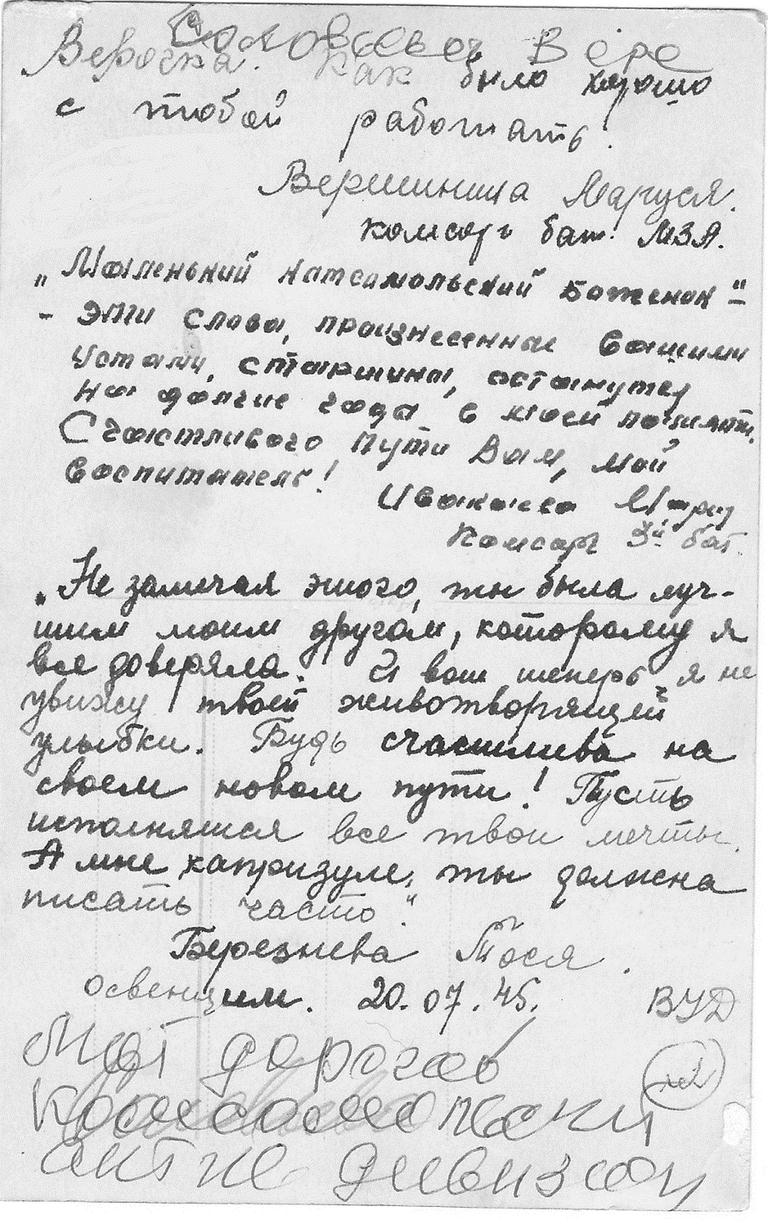 Соловьевой Вере
Верочка. Как было хорошо
с тобой работать.
Вершинина Маруся.
комсорг бат. МЗА.
„Маленький катсамольский боженок"–
– эти слова, произнесенные Вашими
устами, старшина, останутся
на долгие года в моей памяти.
Счастливого пути Вам, мой
воспитатель!
Комсорг 3й бат.
„Не замечая этого, ты была луч-
шим моим другом, которому я
все доверяла. И вот теперь я не
увижу твоей животворящей
улыбки. Будь счастлива на
своем новом пути! Пусть
исполнятся все твои мечты.
А мне капризуле, ты должна
писать часто."
Березнева Тося.
освенцим. 20.07.45. ВУД
Мой дорогой
№2
комсомольски
актив дивизии